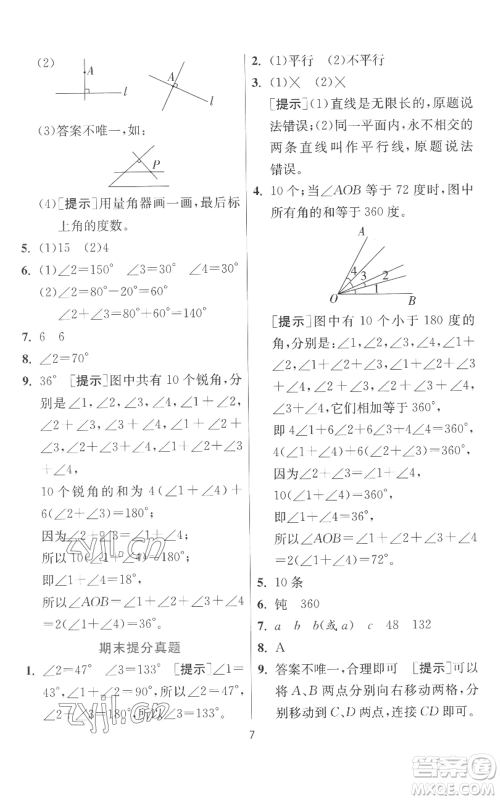 (2)
A
l
A
l
(3)答案不唯一，如:
P
(4)[提示]用量角器画一画,最后标
上角的度数。
5. (1)15 (2)4
6. (1)∠2=150° ∠3=30° ∠4=150°
(2)∠2=80°-20°=60°
∠2+∠3=80°+60°=140°
7. 6 6
8. ∠2=70°
9. 36° [提示]图中共有 10 个锐角,分
别是∠1、∠2、∠3、∠4、∠1+∠2、
∠2+∠3、∠3+∠4、∠1+∠2+
∠3、∠2+∠3+∠4、∠1+∠2+
∠3+∠4,
10 个锐角的和为 4(∠1+∠4)+
6(∠2+∠3)=180°;
因为∠2+∠3=∠1+∠4,
所以 10(∠1+∠4)=180°,
即∠1+∠4=18°,
所以∠AOB=∠1+∠2+∠3+
∠4=36°。
期末提分真题
1. ∠2=47° ∠3=133° [提示]∠1=
43°,∠1+∠2=90°,所以∠2=47°,
∠2+∠3=180°,所以∠3=133°。
2. (1)平行 (2)不平行
3. (1)× (2)×
[提示](1)直线是无限长的,原题说
法错误;(2)同一平面内,永不相交的
两条直线叫作平行线,原题说法
错误。
4. 10个;当∠AOB等于 72 度时,图中
所有角的和等于 360 度。
A
4
3
2
1
O
B
[提示]图中有 10 个小于 180 度的
角,分别是:∠1、∠2、∠3、∠4、∠1+
∠2、∠2+∠3、∠3+∠4、∠1+
∠2+∠3、∠2+∠3+∠4、∠1+
∠2+∠3+∠4,它们相加得360°,
即 4∠1+6∠2+6∠3+4∠4=
4(∠1+∠4)+6(∠2+∠3)=360°,
因为∠2+∠3=∠1+∠4,
所以 10(∠1+∠4)=360°,
即∠1+∠4=36°,
所以∠AOB=∠1+∠2+∠3+
∠4=2(∠1+∠4)=72°。
5. 10 条
6. 钝 360
7. a b b(或a) c 48 132
8. A
9. 答案不唯一,合理即可 [提示]可以
将 A、B 两点分别向右移动两格,再
分别移动 C、D 两点,连接 CD 即可。
7
zyjl.cn
zyjl.cn